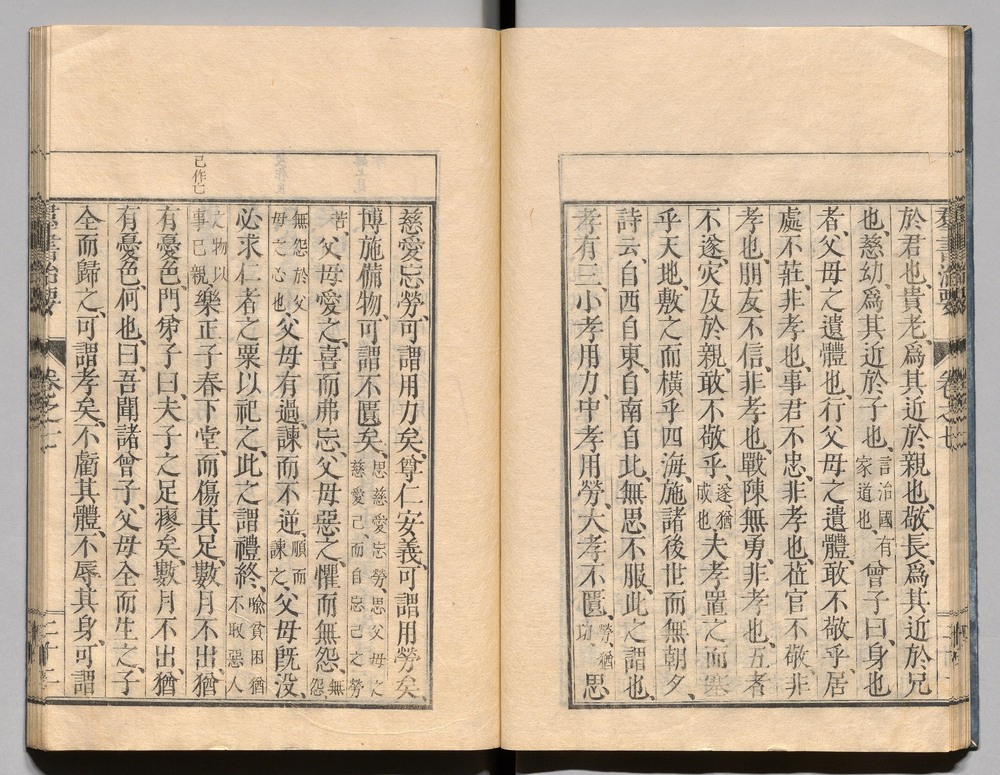 羣書治要 卷之七
於君也、貴老、爲其近於親也、敬長、爲其近於兄
也、慈幼、爲其近於子也、言治國有家道也、曾子曰、身也
者、父母之遺體也、行父母之遺體、敢不敬乎、居
處不莊、非孝也、事君不忠、非孝也、莅官不敬、非
孝也、朋友不信、非孝也、戰陳無勇、非孝也、五者
不遂、灾及於親、敢不敬乎、遂、猶成也、夫孝置之而塞
乎天地、敷之而橫乎四海、施諸後世而無朝夕、
詩云、自西自東、自南自北、無思不服、此之謂也、
孝有三、小孝用力、中孝用勞、大孝不匱、勞、猶功、思
慈愛忘勞、可謂用力矣、尊仁安義、可謂用勞矣、
博施備物、可謂不匱矣、思慈愛忘勞、思父母之慈愛己、而自忘己之勞
苦、父母愛之、喜而弗忘、父母惡之、懼而無怨、無怨
無怨於父母之心也、父母有過、諫而不逆、順而諫之、父母既沒、
必求仁者之粟以祀之、此之謂禮終、喻貧困猶不取惡人
之物以事己親、樂正子春下堂、而傷其足、數月不出、猶
有憂色、門弟子曰、夫子之足瘳矣、數月不出、猶
有憂色、何也、曰、吾聞諸曾子、父母全而生之、子
全而歸之、可謂孝矣、不虧其體、不辱其身、可謂
己作亡
羣書治要 卷之七 二十一